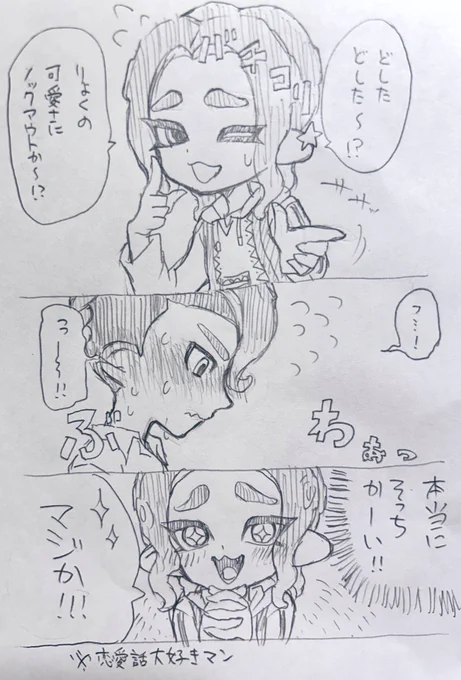 どした
どした～!?
ガチコリ
りょくの
可愛さに
ノックアウトか～!?
サササッ
っ…!
っ～～!!
ぶわ
わぁっ
本当に
そっち
かーい!!
マジか!!!
※恋愛話大好きマン